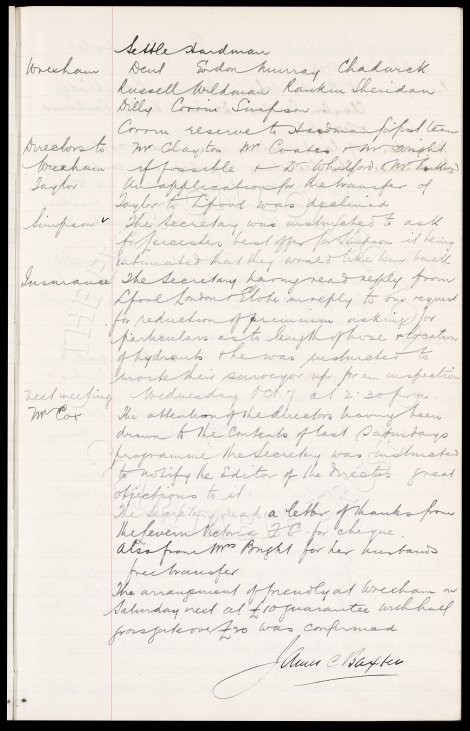 Settle Hardman
Wrexham Dent Gordon Murray Chadwick
Russell Wildman Rankin Sheridan
Dilly Corrin Simpson
Corrin reserve to Hardman first team
Directors to Mr Clayton Mr Coates & Mr Wright
Wrexham if possible & Dr Whitford Mr
Taylor An application for the transfer of
Taylor to Lpool was declined
Simpson The Secretary was instructed to ask
for Leicesters best offer for Simpson it being
intimated that they would like him back
Insurance The Secretary having read reply from
Lpool London & Globe in reply to our request
for reduction of premium asking for
particulars as to length of hose & location
of hydrants & he was instructed to
invite their surveyor up for an inspection
next meeting Wednesday Oct 7 at 2.30 p.m.
Mr Cox The attention of the directors having been
drawn to the contents of last Saturdays
programme the Secretary was instructed
to notify the Editor of the directors great
objections to it
The Secretary read a letter of thanks from
the Severn Victoria F C for cheque.
Also from Mrs Bright for her husbands
free transfer
The arrangement of friendly at Wrexham on
Saturday next at £10 guarantee with half
gross gate over £20 was confirmed
James C Baxter